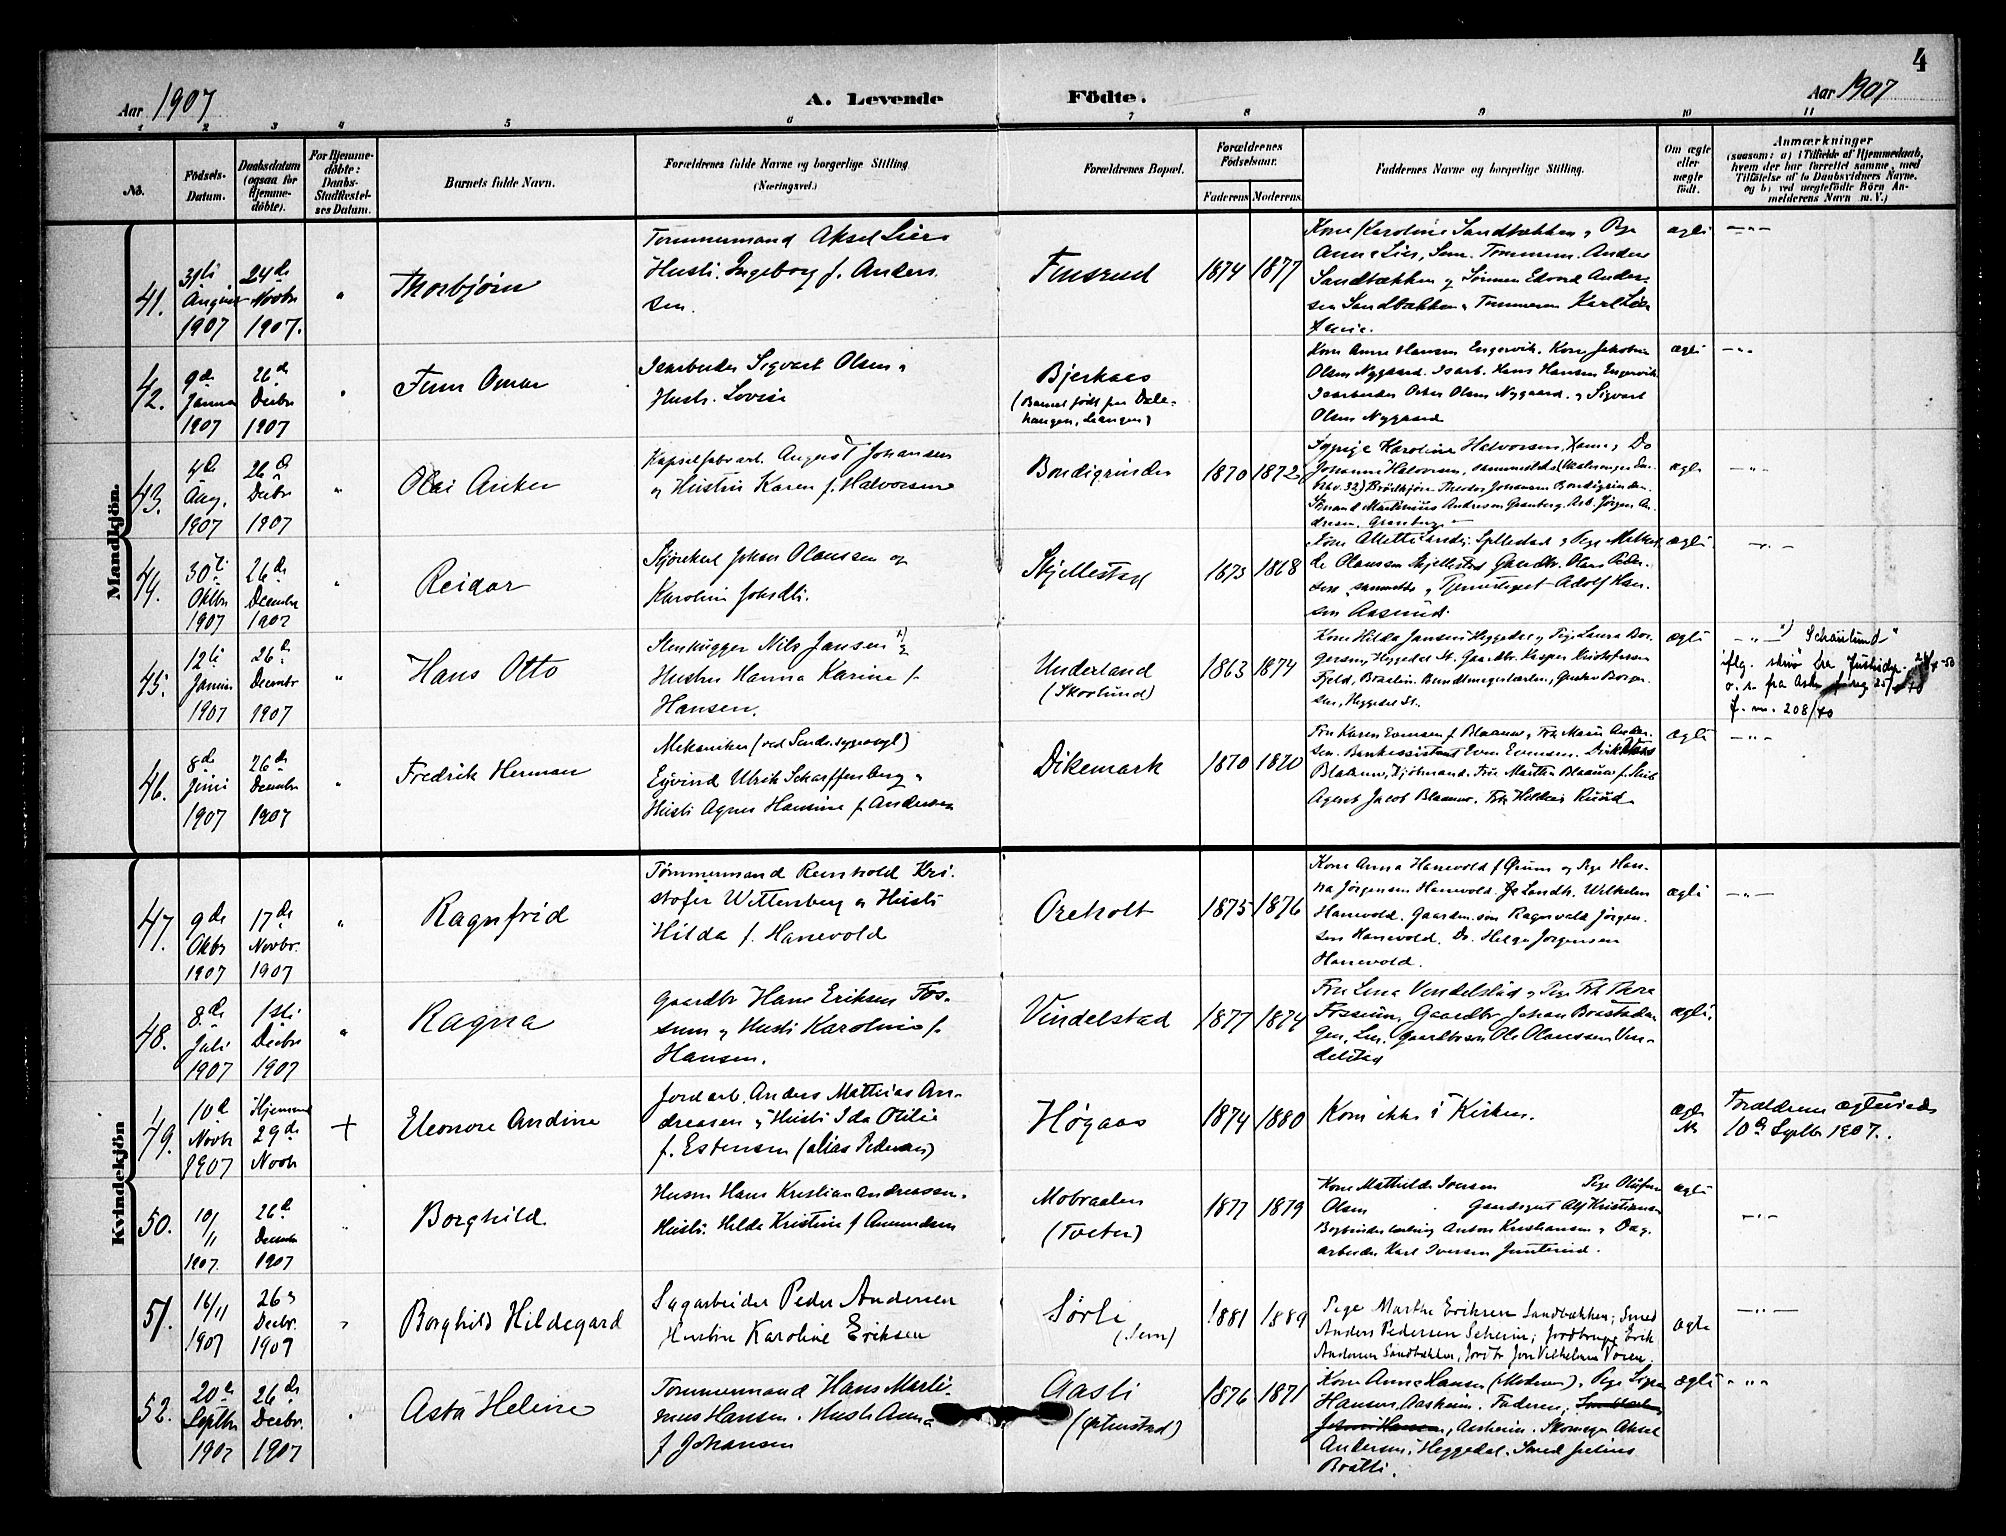 4
Aar 1907
A. Levende Födte.
Aar 1907
1 2 3 4 5 6 7 8 9 10 11
No.
Födsels-Datum.
Daabsdatum (ogsaa for Hjemme-döbte).
For Hjemme-döbte: Daabs-Stadfæstelses Datum.
Barnets fulde Navn.
Forældrenes fulde Navne og borgerlige Stilling. (Næringsvei.)
Forældrenes Bopæl.
Forældrenes Födselsaar.
Faderens Moderens
Faddernes Navne og borgerlige Stilling.
Om ægte eller uægte födt.
Anmærkninger
(saasom: a) i Tilfælde af Hjemmedaab, hvem der har forrettet samme, med Tilföielse af to Daabsvidners Navne, og b) ved uægtefödte Börn Anmelderens Navn m. V.)
Mandkjön.
41.
31te August 1907
24de Novbr 1907.
Thorbjörn
Tømmermand Aksel Lier
Hustr. Ingeborg f. Ander
sen.
Finsrud
1874 1877
Kone Karoline Sandbækken, Pige
Anne Lier, Sem. Tømmerm. Anders
Sandbækken
Sandbækken, Tømmerm Karl Lier
ægte
42.
9de Januar 1907
26de Decbr 1907
Finn Omar
Isarbeider Sigvart Olsen
Hustr. Lovise
Bjerkaas
(Barnet født paa Dale-
hangen, Leangen)
Kone Anne Hansen Engervik. Kone Jakobine
Olsen Nygaard. Isarb. Hans Hansen Engervik
Isarbeider Oskar Olsen Nygaard og Sigvart
Olsen Nygaard
ægte
43.
4de Aug. 1907
26de Decbr 1907
Olai Anker
Kapselfabrarb. August Johansen
og Hustru Karen f. Halvorsen
Bondigrinden
1870 1872
Karoline Halvorsen
Johanne Halvorsen, sammesteds
Theodor Johansen Bondigrinden
Andresen Granberg. Arb. Jörgen An-
dresen, Granberg
ægte
44.
30te Oktbr 1907
26de Decembr 1907
Reidar
Johan Olaussen og
Karoline Johsdtr.
Skjellestad
1873 1868
de Olaussen Skjellestad Gaardbr. Olaus Peder-
sen, sammesteds, Tjenestegut Adolf Han-
sen Aasrud.
ægte
45.
12te Januar 1907
26de Decembr 1907
Hans Otto
Stenhugger Nils Jansen x)
Hustru Hanna Karine f.
Hansen.
Underland
(Skovlund)
1863 1874
Kone Hilda Jansen Heggedal og Pige Laura Bor-
gersen, Heggedal St. Gaardbr. Kasper Kristoffersen
Fjeld, Gustav Borger-
sen, Heggedal St.
ægte
x) Schaülund"
iflg. skriv fra Justisdep.
f. nr. 208/40
46.
8de Juni 1907
26de Decembr 1907
Fredrik Herman
Mekaniker (ved Sindssygeasyl)
Eyvind Ulrik Scharffenberg
Hustr Agnes Hansine f. Andersen
Dikemark
1870 1870
Fru Karen Evensen f. Blaauw, Frk Marie Ander-
sen. Bankassistent Even Evensen.
Blaauw, Kjøbmand. Fru Martha Blaauw f.
Agent Jacob Blaauw.
ægte
Kvindekjön
47.
9de Oktbr 1907
17de Novbr. 1907
Ragnfrid
Tømmermand Reinhold Kri-
stofer Wittersberg og Hustr
Hilda f. Hanevold
Oreholt
1875 1876
Kone Anna Hanevold f Ørum og Pige Han-
na Jörgensen Hanevold. Landh. Wilhelm
Hanevold. Gaardm.søn Ragnvald Jörgen-
sen Hanevold. Do. Helge Jørgensen
Hanevold.
ægte
48.
8de Juli 1907
1ste Decbr 1907
Ragna
Gaardbr Hans Eriksen Fos-
sum og Hustr Karoline f.
Hansen.
Vindelstad
1877 1874
Fru Lina Vendelstad, Pige Thora
Fossum, Gaardbr Johan
Gaardbrsøn Ole Olaussen Ven-
delstad
ægte.
49.
10de Novbr 1907
Hjemme 29de Novbr
+
Eleonore Andine
Jordarb. Anders Mathias An-
dreasen og Hustr Ida Otilie
f. Estensen (alias Pedersen)
Högaas
1874 1880
Kom ikke i Kirken.
ægte
Forældrene ægteviede
10de Septbr 1907.
50.
10/11 1907.
26de Decembr 1907
Borghild
Husm Hans Kristian Andreasen.
Hustr. Hilda Kristine f Amundsen
Mobraaten
(Tveter)
1877 1879
Kone Mathilde Iversen Pige Olufine
Olsen Gaardsgut Alf Kristiansen
Bogbinderlærling Anton Kristiansen, Dag-
arbeider Karl Iversen
ægte
51.
16/11 1907
26de Decbr. 1907
Borghild Hildegard
Sagarbeider Peder Andersen
Hustru Karoline Eriksen
Sörli
(Sem)
1881 1889
Pige Marthe Eriksen Sandbækken; Smed
Anders Pedersen Jordbruger Erik
Andersen Sandbækken, Jordbr Jon Vilhelmsen
ægte
52.
20de Septbr 1907
26de Decbr. 1907
Asta Heline
Tømmermand Hans Marti-
nius Hansen. Hustr Anna
f Johansen
Aasli
(Østenstad)
1876 1871
Kone Anne Hansen (Moderen), Pige Signe
Hansen, Aasheim. Faderen,
Aasheim. Skomager Aksel
Andersen, Heggedal. Smed Julius
Bråtli.
ægte